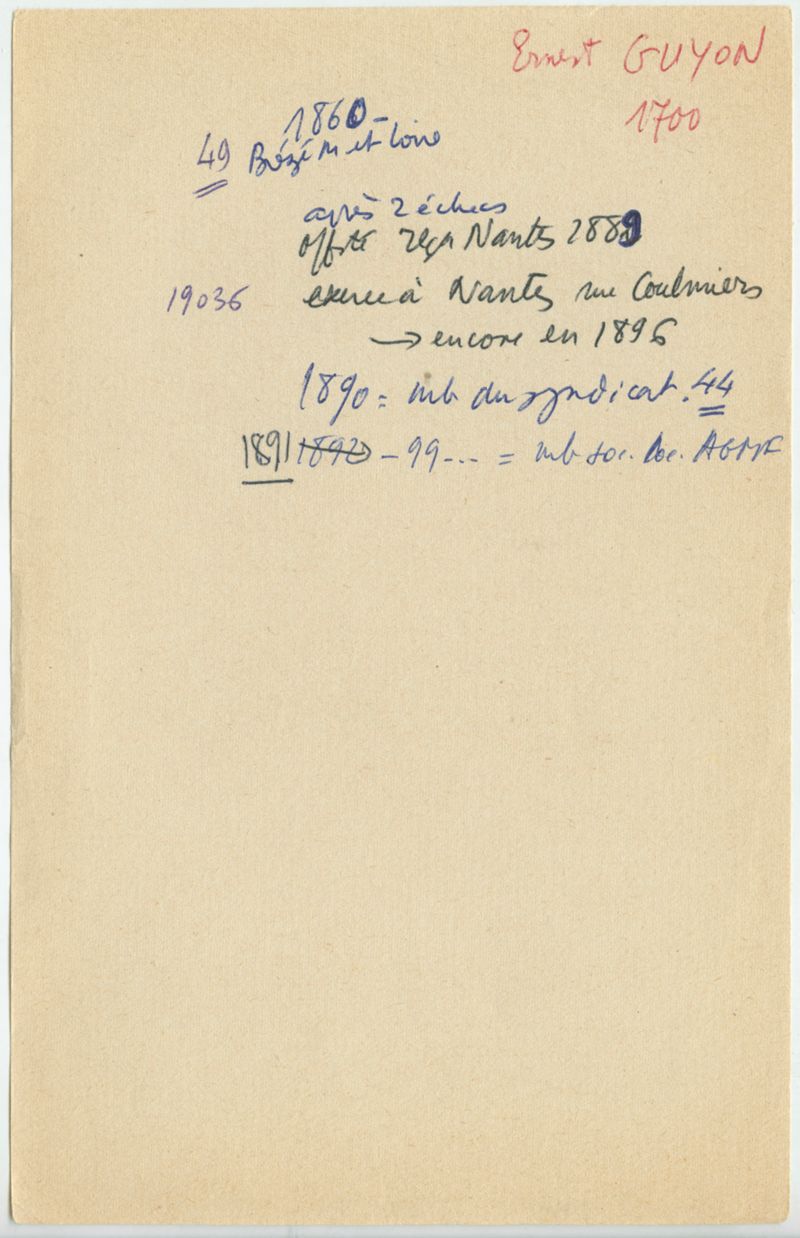 Ernest GUYON
1700
1860-
49 Brézé M et Loire
après 2 échecs
offté reçu Nantes 1889
19036 exerce à Nantes rue Coulmiers
→ encore en 1896
1890 = mb du syndicat. 44
1891 1892 - 99... = mb soc. loc. AGMF